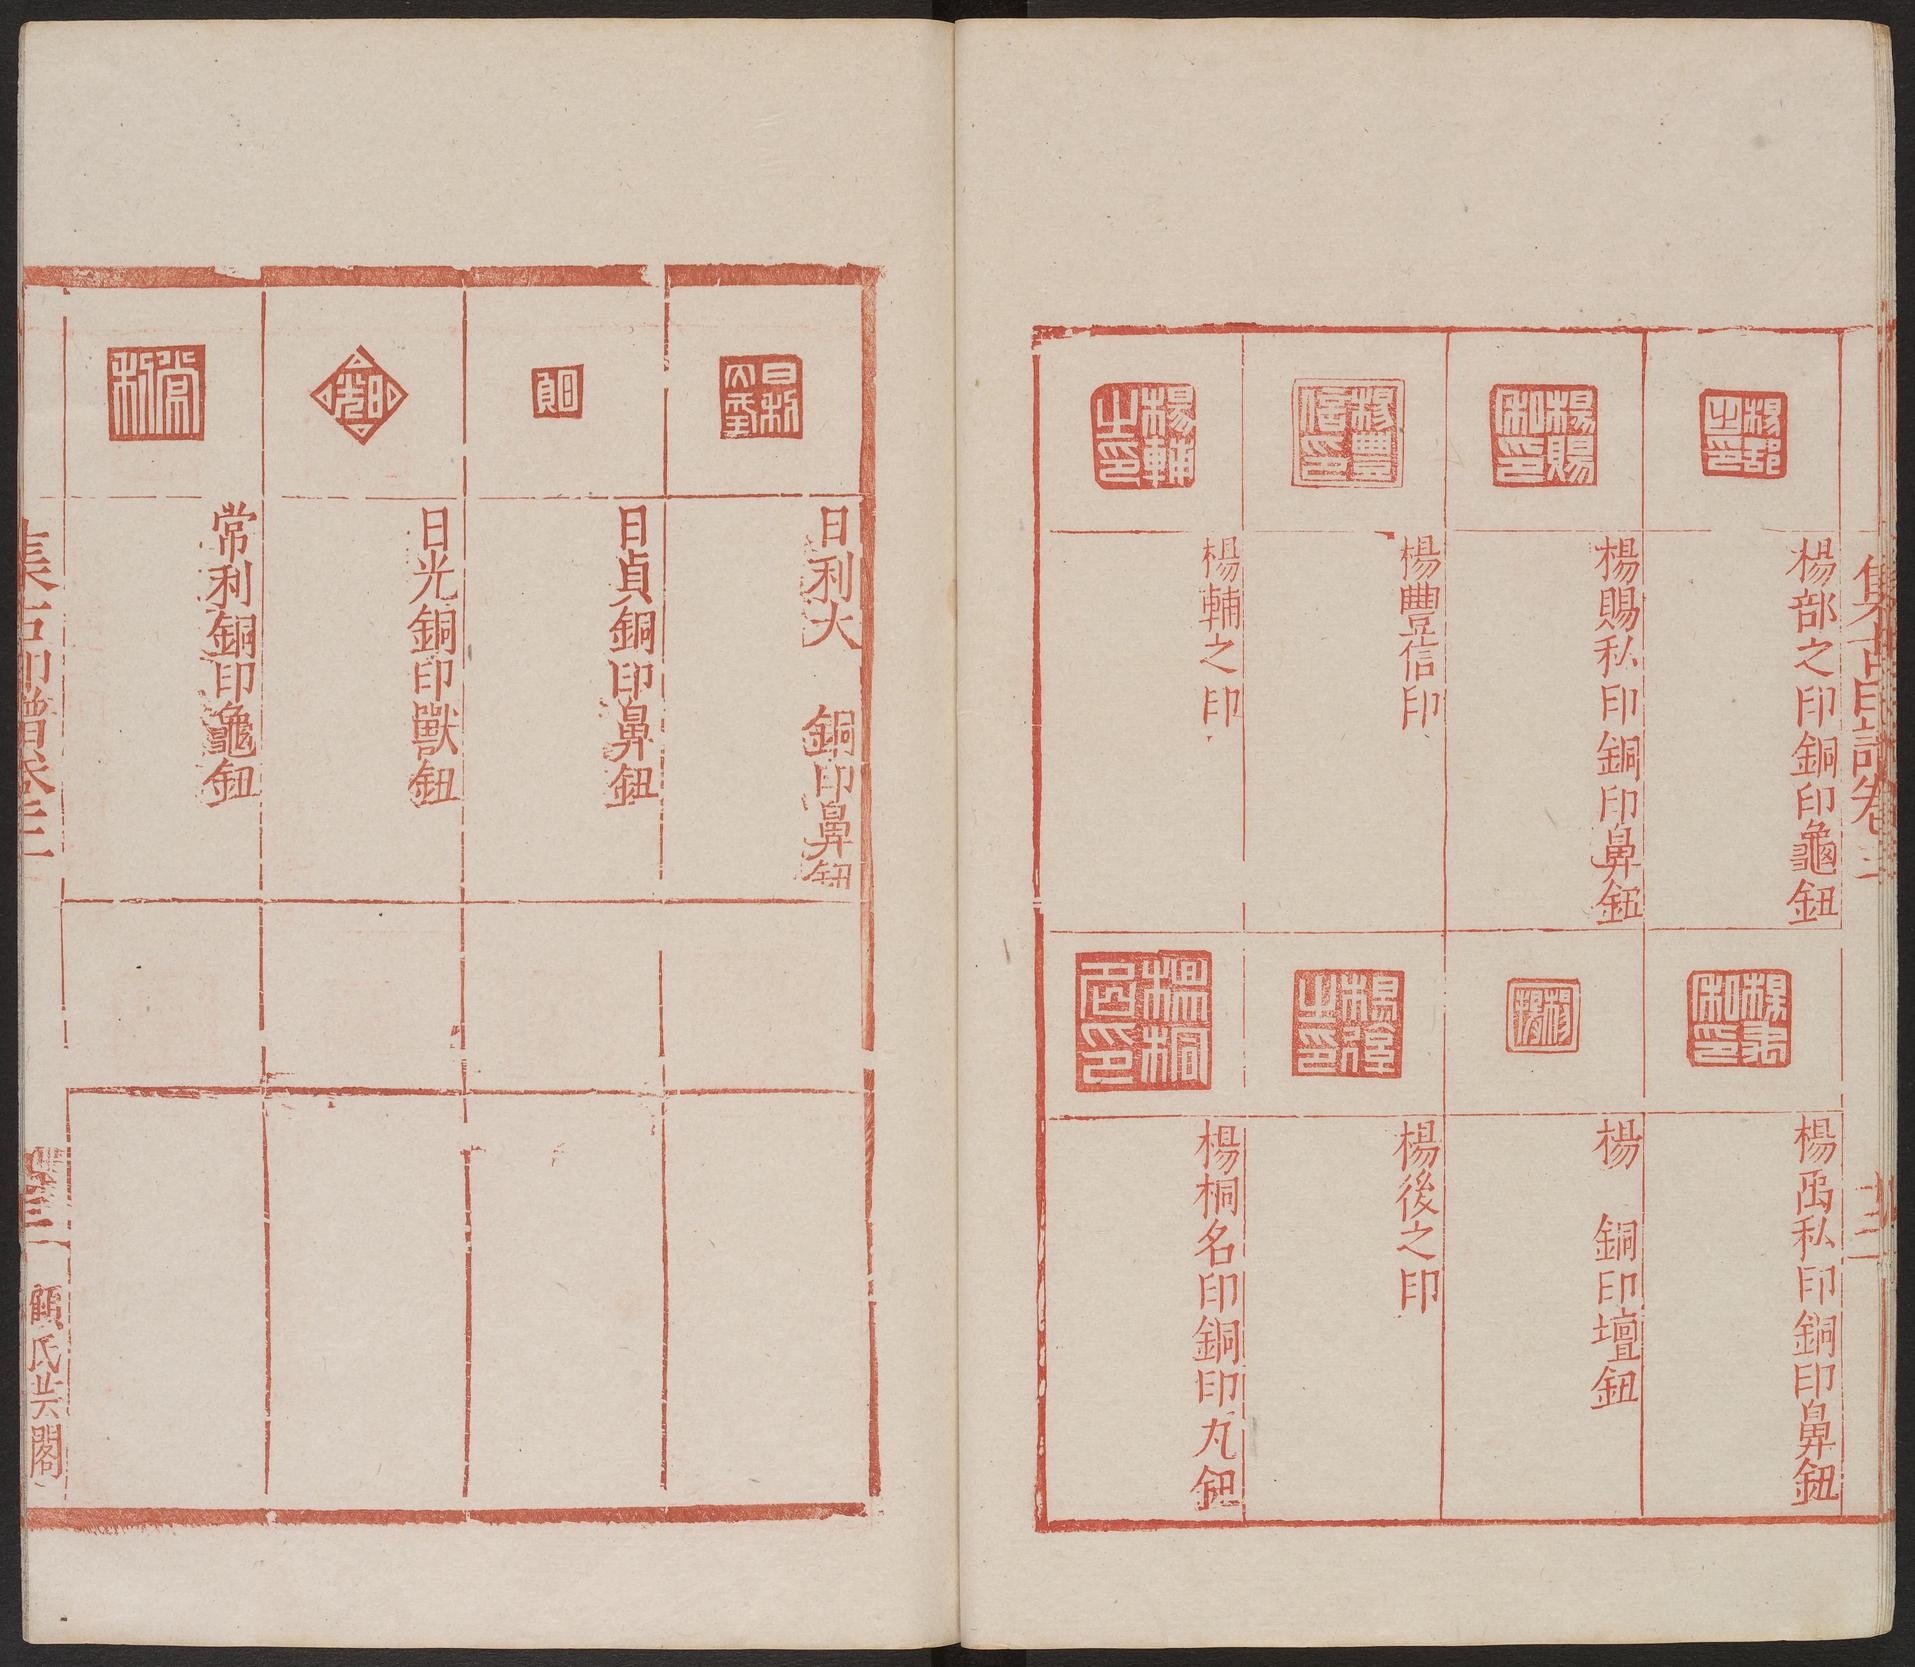 集古印譜卷三
楊部之印銅印龜鈕
楊賜私印銅印鼻鈕
楊豐信印
楊輔之印
楊禹私印銅印鼻鈕
楊 銅印壇鈕
楊後之印
楊桐名印銅印丸鈕
日利大 銅印鼻鈕
日貞銅印鼻鈕
日光銅印獸鈕
常利銅印龜鈕
集古印譜卷三
顧氏芸閣